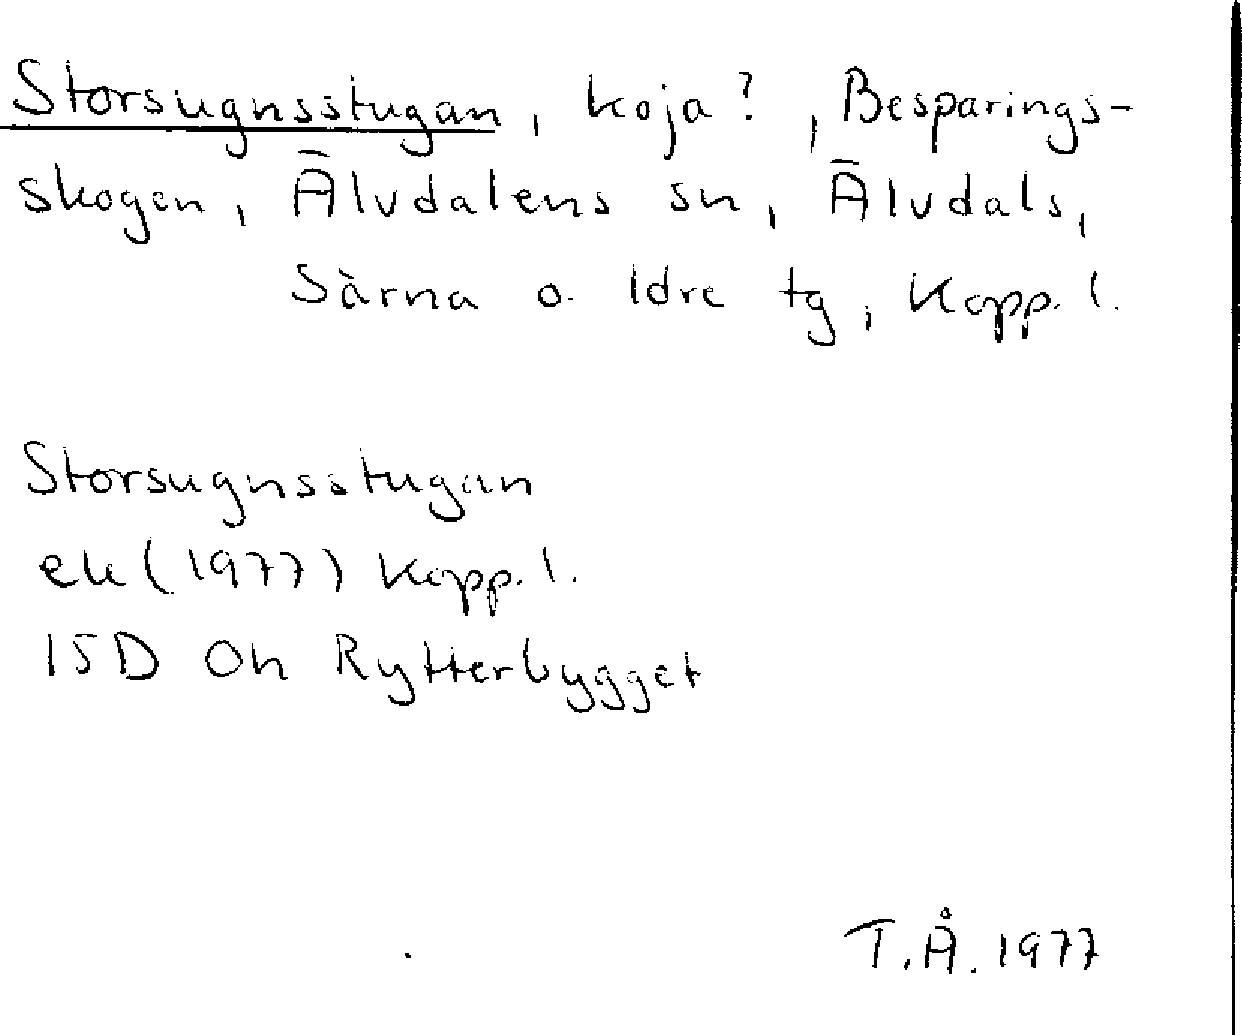 Storsugnsstugan, koja?, Besparings-
skogen, Älvdalens sn, Älvdals,
Särna o. Idre tg, Kopp. l.
Storsugnsstugan
ek (1977) Kopp. l.
15D 0h Rytterbygget
T.Å. 1977